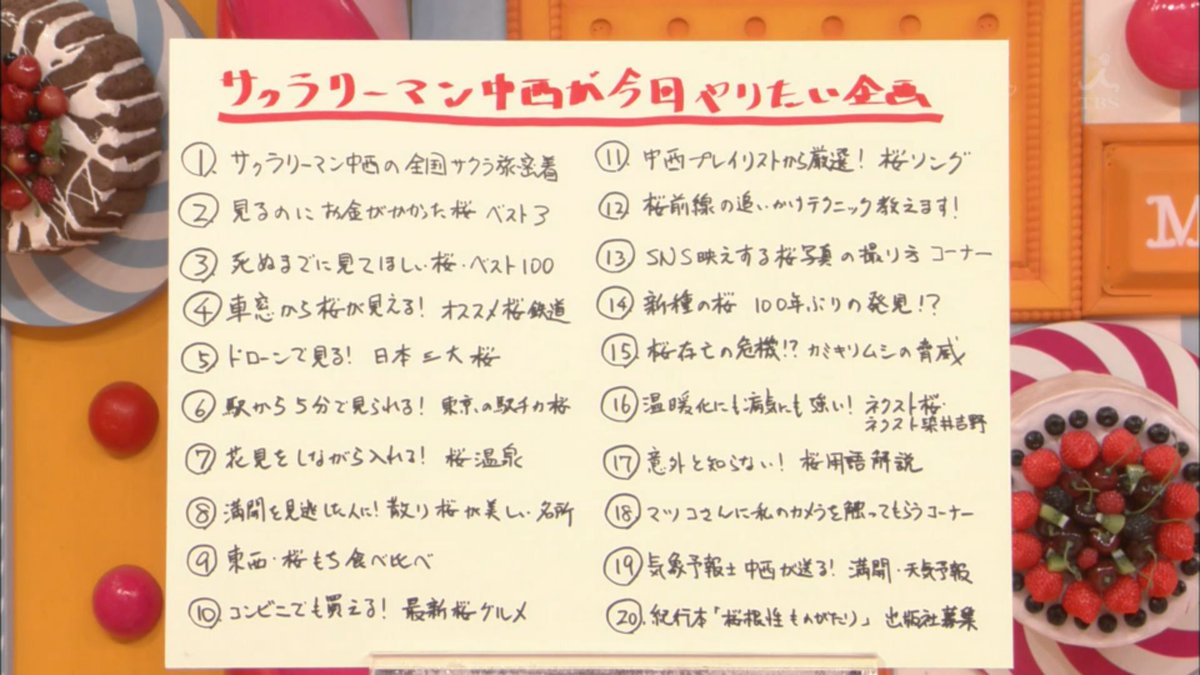 サクラリーマン中西が今日やりたい企画
① サクラリーマン中西の全国サクラ旅密着
② 見るのにお金がかかった桜 ベスト3
③ 死ぬまでに見てほしい桜・ベスト100
④ 車窓から桜が見える! オススメ桜鉄道
⑤ ドローンで見る! 日本三大桜
⑥ 駅から5分で見られる! 東京の駅チカ桜
⑦ 花見をしながら入れる! 桜温泉
⑧ 満開を見逃した人に! 散り桜が美しい名所
⑨ 東西・桜もち食べ比べ
⑩ コンビニでも買える! 最新桜グルメ
⑪ 中西プレイリストから厳選! 桜ソング
⑫ 桜前線の追いかけテクニック教えます!
⑬ SNS映えする桜写真の撮り方コーナー
⑭ 新種の桜 100年ぶりの発見!?
⑮ 桜存亡の危機!? カミキリムシの脅威
⑯ 温暖化にも病気にも強い! ネクスト桜・
ネクスト染井吉野
⑰ 意外と知らない! 桜用語解説
⑱ マツコさんに私のカメラを触ってもらうコーナー
⑲ 気象予報士中西が送る! 満開・天気予報
⑳ 紀行本「桜根性ものがたり」 出版社募集
TBS
M